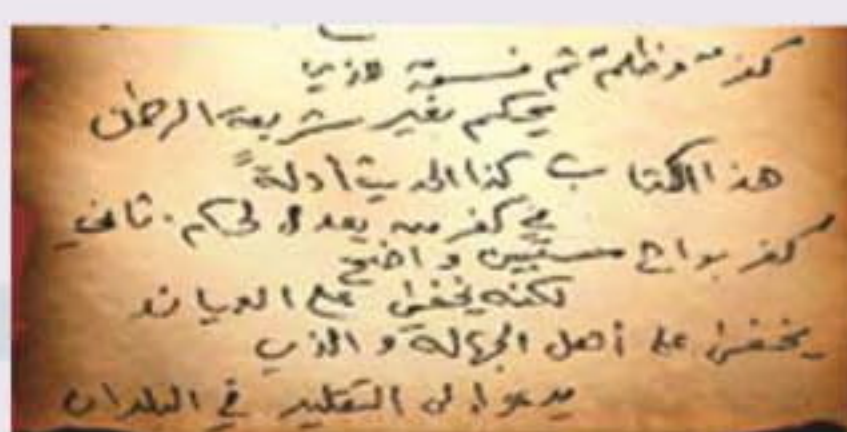 كفر وظلم ثم فسق الذي
يحكم بغير شريعة الرحمن
هذا الكتاب كذا الحديث أدلة
في كفر من يعدل لحكم ثاني
كفر بواح مستبين واضح
لكنه يخفى على العميان
يخفى على أهل الجهالة والذي
يدعوا إلى التقليد في البلدان